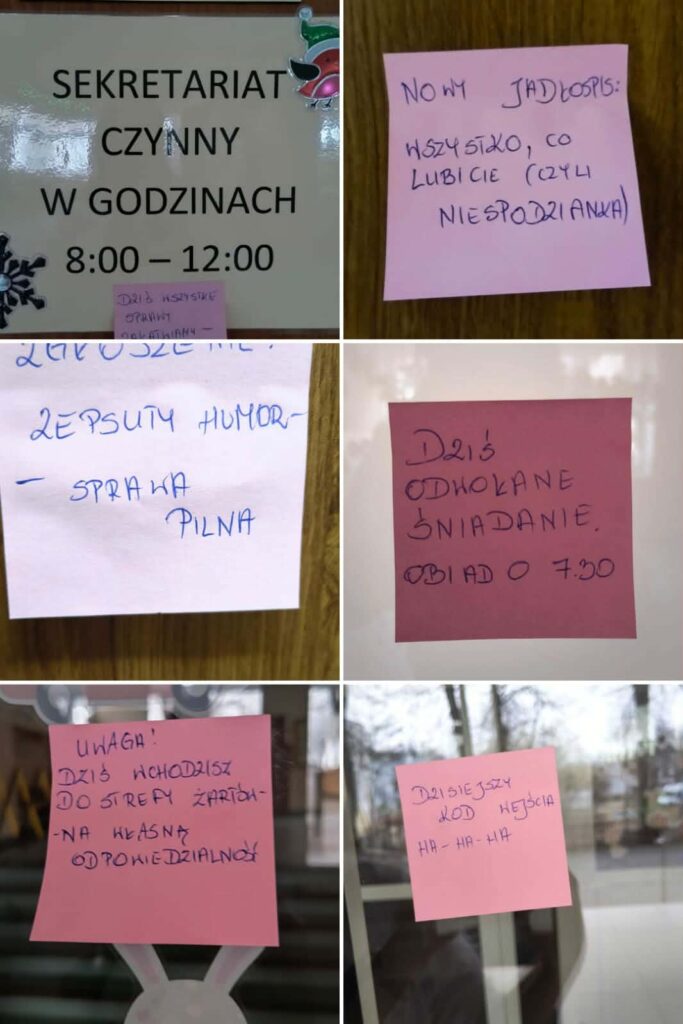 SEKRETARIAT
CZYNNY
W GODZINACH
8:00 – 12:00
DZIŚ WSZYSTKE
SPRAWY
ZAŁATWIAMY –
NOWY JADŁOSPIS:
WSZYSTKO, CO
LUBICIE (CZYLI
NIESPODZIANKA)
ZGŁOSZENIE:
ZEPSUTY HUMOR-
- SPRAWA
PILNA
DZIŚ
ODWOŁANE
ŚNIADANIE.
OBIAD O 7.30
UWAGA!
DZIŚ WCHODZISZ
DO STREFY ŻARTÓW-
-NA WŁASNĄ
ODPOWIEDZIALNOŚĆ
DZISIEJSZY
KOD WEJŚCIA
HA-HA-HA